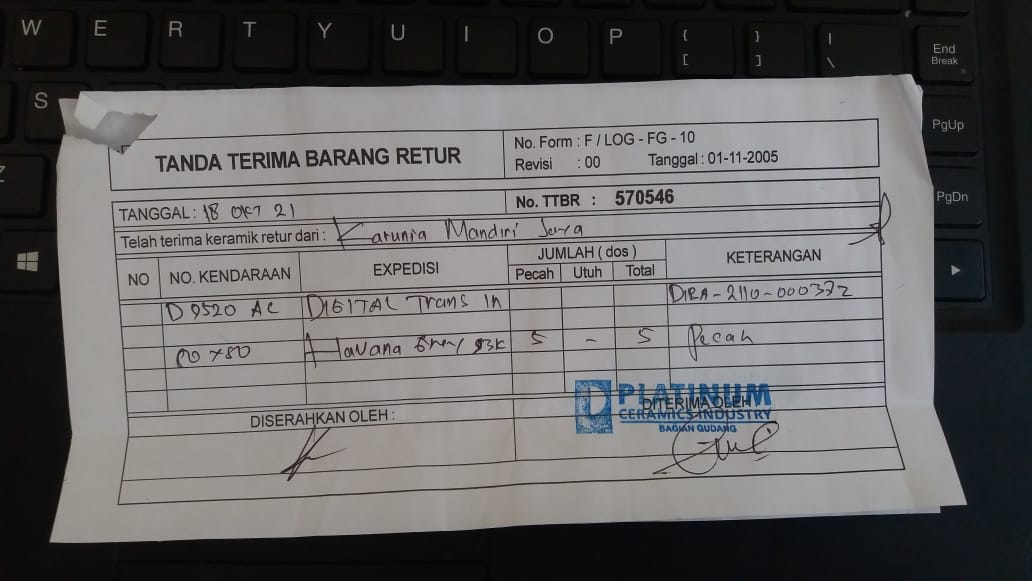 W E R T Y U I O P { [ } ] | \ End Break
S PgUp
Z PgDn
TANDA TERIMA BARANG RETUR
No. Form : F / LOG - FG - 10
Revisi : 00 Tanggal : 01-11-2005
TANGGAL : 18 OKT 21 No. TTBR : 570546
Telah terima keramik retur dari : Karunia Mandiri Jaya
NO NO. KENDARAAN EXPEDISI JUMLAH ( dos ) KETERANGAN
Pecah Utuh Total
D 9520 AC DIGITAL Trans In DIRA-2110-000372
80 x 80 Havana Grey 5 - 5 Pecah
DISERAHKAN OLEH : DITERIMA OLEH
PLATINUM
CERAMICS INDUSTRY
BAGIAN GUDANG